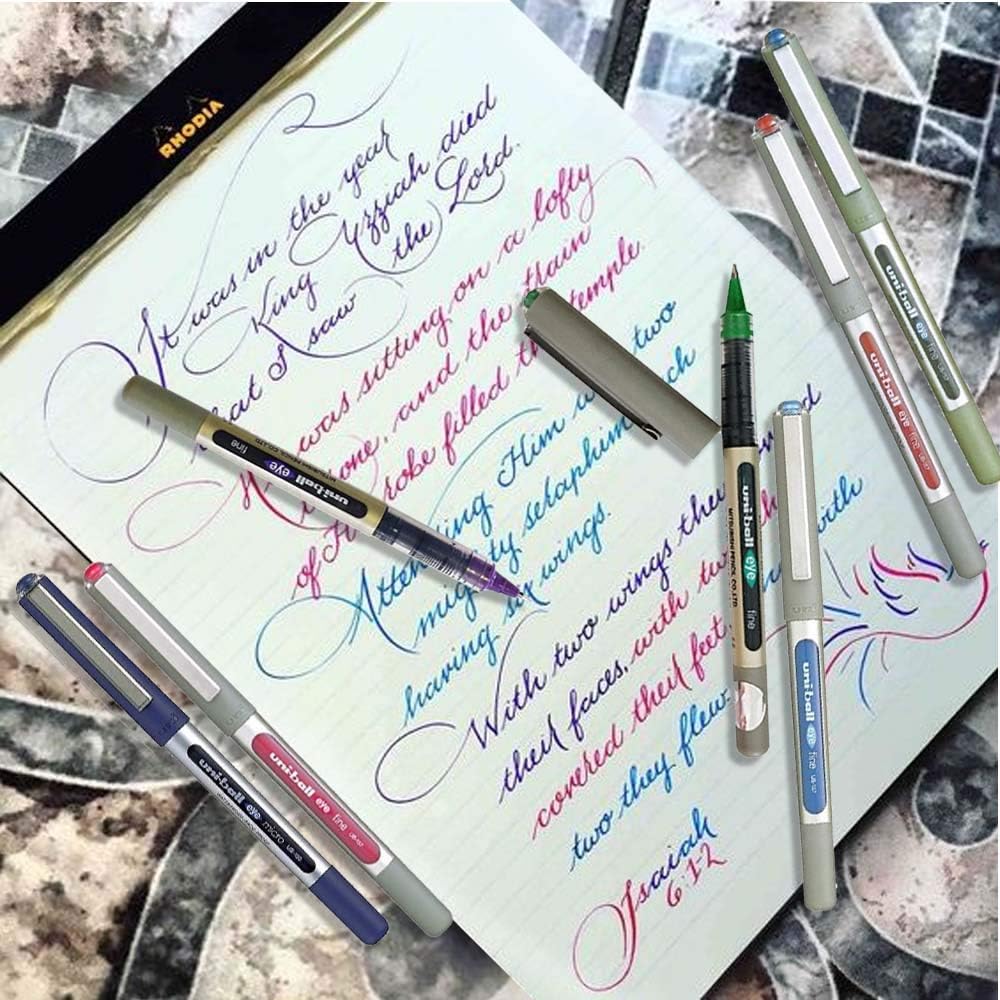 RHODIA
It was in the year
King Uzziah died
that I saw the Lord.
He was sitting on a lofty
throne, and the train
of His robe filled the temple.
Attending Him were two
mighty seraphim, each
having six wings.
With two wings they
their faces, with two
covered their feet, with
two they flew.
Isaiah
6:1-2
uni-ball eye fine
MITSUBISHI PENCIL CO.LTD
uni-ball eye fine
MITSUBISHI PENCIL CO.,LTD
uni-ball eye fine
uni-ball eye fine
uni-ball eye fine UB-157
uni-ball eye micro UB-150
uni-ball eye fine UB-157